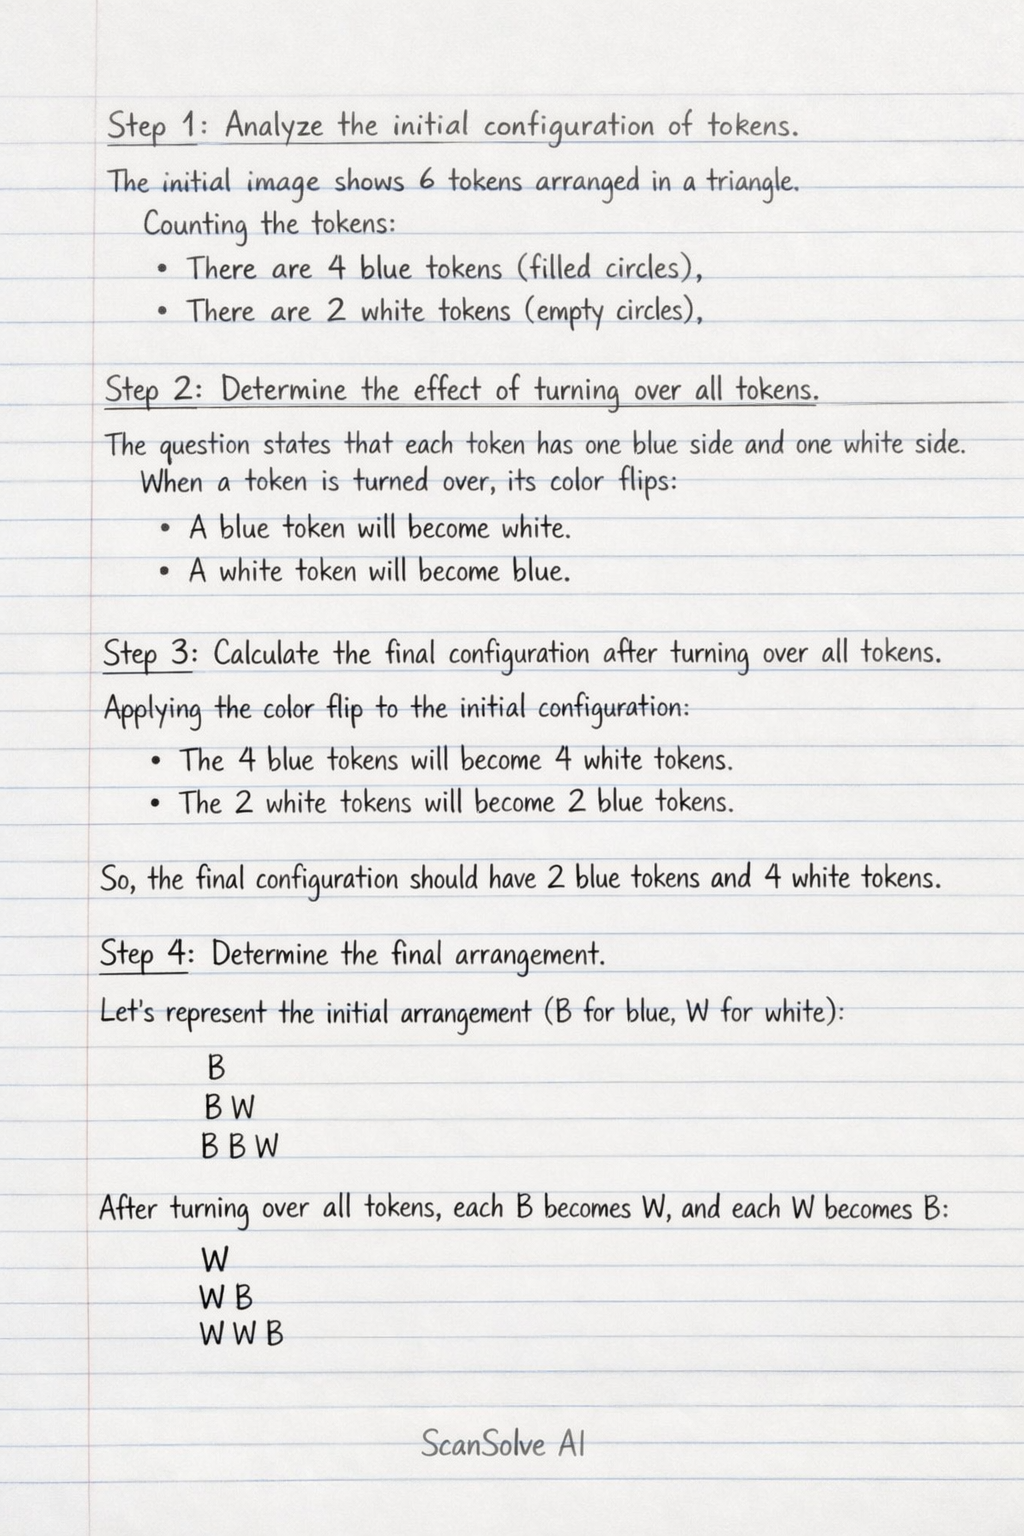 Step 1: Analyze the initial configuration of tokens.
The initial image shows 6 tokens arranged in a triangle.
Counting the tokens:
• There are 4 blue tokens (filled circles),
• There are 2 white tokens (empty circles),
Step 2: Determine the effect of turning over all tokens.
The question states that each token has one blue side and one white side.
When a token is turned over, its color flips:
• A blue token will become white.
• A white token will become blue.
Step 3: Calculate the final configuration after turning over all tokens.
Applying the color flip to the initial configuration:
• The 4 blue tokens will become 4 white tokens.
• The 2 white tokens will become 2 blue tokens.
So, the final configuration should have 2 blue tokens and 4 white tokens.
Step 4: Determine the final arrangement.
Let's represent the initial arrangement (B for blue, W for white):
B
B W
B B W
After turning over all tokens, each B becomes W, and each W becomes B:
W
W B
W W B
ScanSolve AI